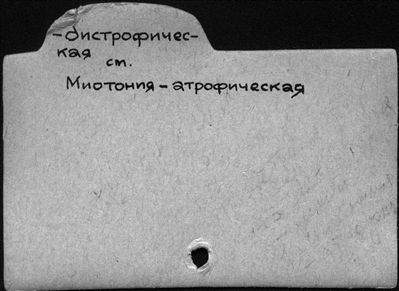 -дистрофичес-
кая
ст.
Миотония-атрофическая